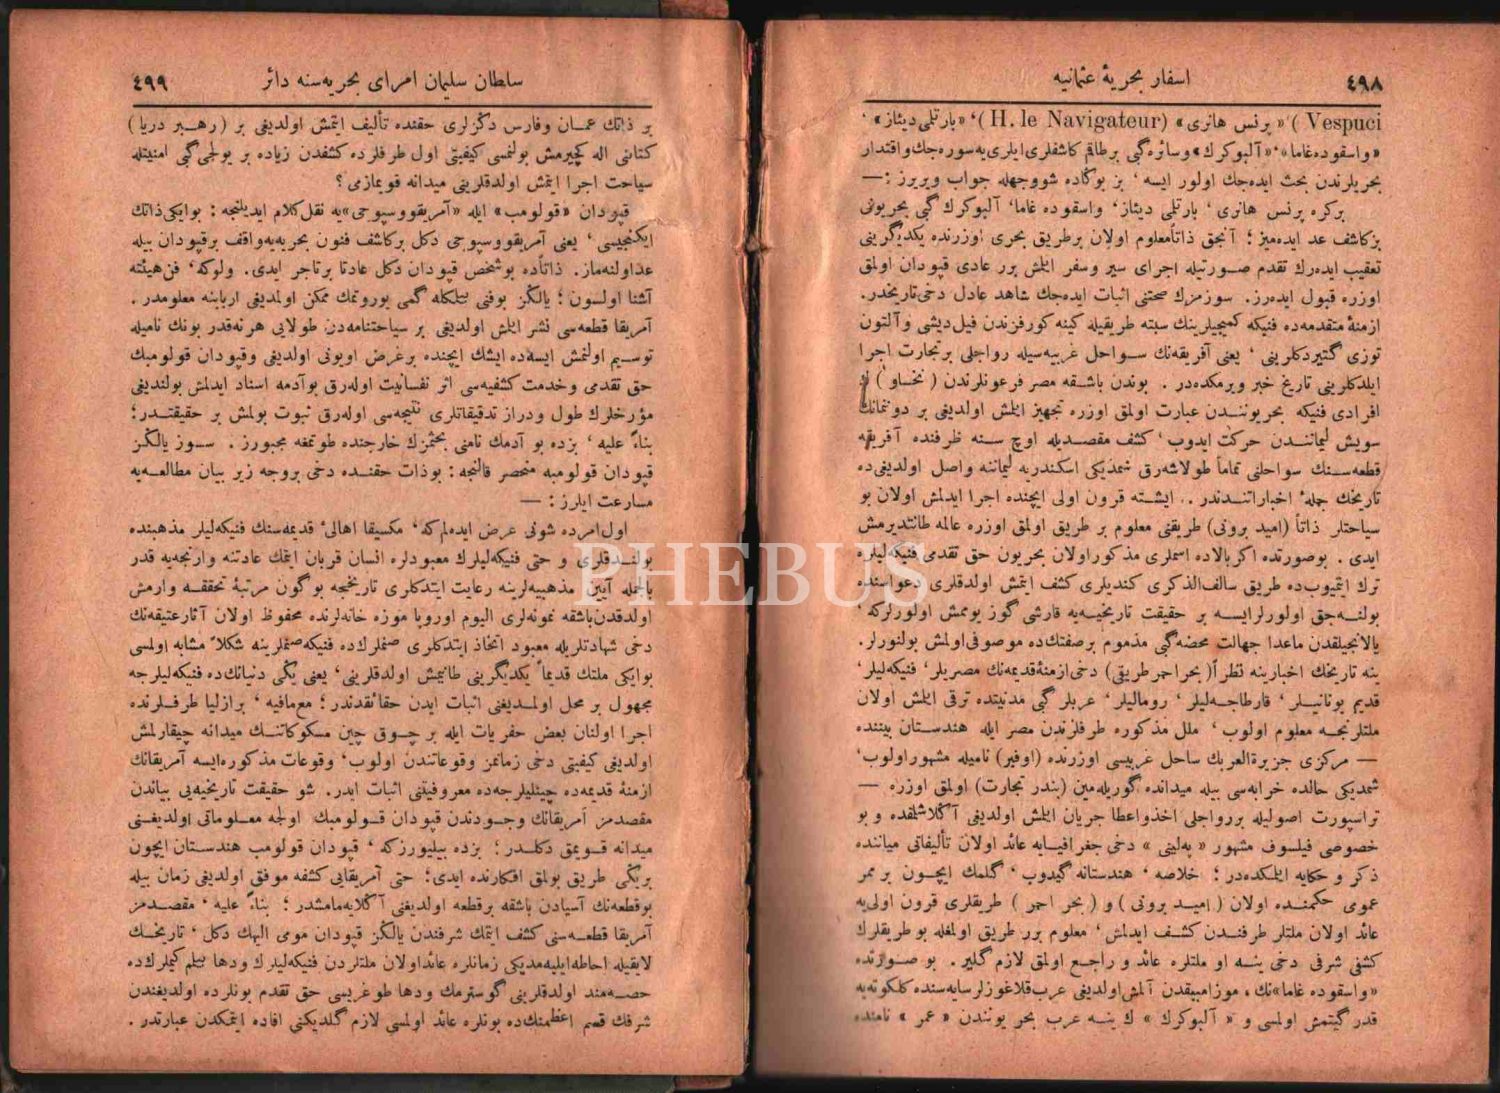 ٤٩٨
اسفار بحریهٔ عثمانیه
Vespuci )’ « پرنس هانری » (H. le Navigateur )‘ «بارتلمی دیئاز» ‘
«واسقوده غاما» ‘ «آلبوکرك» وسائره کبی برطاقم کاشفلری ایلری یه سوره جك واقتدار
بحریلرندن بحث ایده جك اولور ایسه ‘ بز بوکاده شووجهله جواب ویررز : —
برکره پرنس هانری ‘ بارتلمی دیئاز‘ واسقوده غاما‘ آلبوکرك کبی بحریونی
برکاشف عد ایده میز ؛ آنجق ذاتاً معلوم اولان برطریق بحری اوزرنده یکدیگرینی
تعقیب ایده رك تقدم صورتیله اجرای سیر وسفر ایلمش برر عادی قپودان اولمق
اوزره قبول ایده رز. سوزمزك صحتنی اثبات ایده جك شاهد عادل دخی تاریخدر.
ازمنهٔ متقدمه ده فنیکه کمیجیلرینك سبته طریقیله کینه کورفزندن فیل دیشی وآلتون
توزی گتیردکلرینی ‘ یعنی آفریقه نك سواحل غربیه سیله رواجلی برتجارت اجرا
ایلدکلرینی تاریخ خبر ویرمکده در . بوندن باشقه مصر فرعونلرندن ( نخاو )
افرادی فنیکه بحریونندن عبارت اولمق اوزره تجهیز ایلمش اولدیغی بر دونمانك
سویش لیمانندن حرکت ایدوب ‘ کشف مقصدیله اوچ سنه ظرفنده آفریقه
قطعه سنك سواحلنی تماماً طولاشه رق شمدیکی اسکندریه لیماننه واصل اولدیغی ده
تاریخك جملهٔ اخباراتندندر . ایشته قرون اولی ایچنده اجرا ایدلمش اولان بو
سیاحتلر ذاتاً (امید برونی) طریقنی معلوم بر طریق اولمق اوزره عالمه طانتدیرمش
ایدی . بوصورتده اکر بالاده اسملری مذکور اولان بحریون حق تقدمی فنیکه لیلره
ترك ایتمیوب ده طریق سالف الذکری کندیلری کشف ایتمش اولدقلری دعواسنده
بولنه جق اولورلر ایسه بر حقیقت تاریخیه یه قارشی گوز یوممش اولورلر که ‘
یالانجیلقدن ماعدا جهالت محضه کبی مذموم برصفتك ده موصوفی اولمش بولنورلر.
ینه تاریخك اخبارینه نظراً (بحر احمر طریقی) دخی ازمنهٔ قدیمه نك مصریلر‘ فنیکه لیلر‘
قدیم یونانیلر ‘ قارطاجه لیلر ‘ رومالیلر ‘ عربلر کبی مدنیتده ترقی ایلمش اولان
ملتلرنجه معلوم اولوب ‘ ملل مذکوره طرفلرندن مصر ایله هندستان بیننده
— مرکزی جزیرة العربك ساحل غربیسی اوزرنده (اوفیر) نامیله مشهور اولوب‘
شمدیکی حالده خرابه سی بیله میدانده گوریله مین (بندر تجارت) اولمق اوزره —
ترانسپورت اصولیله بررواجلی اخذ واعطا جریان ایلمش اولدیغی آکلاشلقده و بو
خصوصی فیلسوف مشهور « په لینی » دخی جغرافیایه عائد اولان تألیفاتی میاننده
ذکر و حکایه ایلمکده در ؛ خلاصه ‘ هندستانه گیدوب ‘ گلمك ایچون بر ممر
عمومی حکمنده اولان ( امید برونی ) و ( بحر احمر ) طریقلری قرون اولی یه
عائد اولان ملتلر طرفندن کشف ایدلمش ‘ معلوم برر طریق اولمغله بو طریقلرك
کشفی شرفی دخی ینه او ملتلره عائد و راجع اولمق لازم گلیر . بو صورتده
«واسقوده غاما»نك ، موزامبیقدن آلمش اولدیغی عرب قلاغوزلر سایه سنده کلکوته یه
قدر گیتمش اولمسی و « آلبوکرك » ك ینه عرب بحریونندن « عمر » نامنده
٤٩٩
سلطان سلیمان امرای بحریه سنه دائر
بر ذاتك عمان وفارس دکزلری حقنده تألیف ایتمش اولدیغی بر (رهبر دریا)
کتابنی اله کچیرمش بولنمسی کیفیتی اول طرفلرده کشفدن زیاده بر یولجی کبی امنیتله
سیاحت اجرا ایتمش اولدقلرینی میدانه قویمازمی ؟
قپودان «قولومب» ایله «آمریقووسپوجی»یه نقل کلام ایدیلنجه : بوایکی ذاتك
ایکنجیسی ‘ یعنی آمریقووسپوجی دکل برکاشف فنون بحریه یه واقف برقپودان بیله
عد اولنه ماز. ذاتاً ده بوشخص قپودان دکل عادتا بر تاجر ایدی. ولوکه‘ فن هیئته
آشنا اولسون ؛ یالکز بوفنی بیلمکله گمی یوروتمك ممکن اولمدیغی اربابنه معلومدر .
آمریقا قطعه سی نشر ایلمش اولدیغی بر سیاحتنامه دن طولایی هر نه قدر بونك نامیله
توسیم اولنمش ایسه ده ایشك ایچنده برغرض اویونی اولدیغی وقپودان قولومبك
حق تقدمی وخدمت کشفیه سی اثر نفسانیت اوله رق بوآدمه اسناد ایدلمش بولندیغی
مؤرخلرك طول ودراز تدقیقاتلری نتیجه سی اوله رق ثبوت بولمش بر حقیقتدر ؛
بناءً علیه ‘ بزده بو آدمك نامنی بحثمزك خارجنده طوتمغه مجبورز . سوز یالکز
قپودان قولومبه منحصر قالنجه : بوذات حقنده دخی بروجه زیر بیان مطالعه یه
مسارعت ایلرز : —
اول امرده شونی عرض ایده لم که ‘ مکسیقا اهالیٔ قدیمه سنك فنیکه لیلر مذهبنده
بولندقلری و حتی فنیکه لیلرك معبودلره انسان قربان ایتمك عادتنه وارنجه یه قدر
بالجمله آیین مذهبیه لرینه رعایت ایتدکلری تاریخجه بوگون مرتبهٔ تحققه وارمش
اولدقدن باشقه نمونه لری الیوم اوروپا موزه خانه لرنده محفوظ اولان آثار عتیقه نك
دخی شهادتلریله معبود اتخاذ ایتدکلری صنملرك ده فنیکه صنملرینه شکلاً مشابه اولمسی
بوایکی ملتك قدیماً یکدیگرینی طانیمش اولدقلرینی ‘ یعنی یکی دنیانك ده فنیکه لیلرجه
مجهول بر محل اولمدیغنی اثبات ایدن حقائقدندر ؛ مع مافیه ‘ برازلیا طرفلرنده
اجرا اولنان بعض حفریات ایله بر چوق چین مسکوکاتنك میدانه چیقارلمش
اولدیغی کیفیتی دخی زمانمز وقوعاتندن اولوب‘ وقوعات مذکوره ایسه آمریقانك
ازمنهٔ قدیمه ده چینلیلرجه ده معروفیتنی اثبات ایدر. شو حقیقت تاریخیه یی بیاندن
مقصدمز آمریقانك وجودندن قپودان قولومبك اولجه معلوماتی اولدیغنی
میدانه قویمق دکلدر ؛ بزده بیلیورزکه ‘ قپودان قولومب هندستان ایچون
بریکی طریق بولمق افکارنده ایدی ؛ حتی آمریقایی کشفه موفق اولدیغی زمان بیله
بوقطعه نك آسیادن باشقه برقطعه اولدیغنی آکلایه مامشدر ؛ بناءً علیه ‘ مقصدمز
آمریقا قطعه سنی کشف ایتمك شرفندن یالکز قپودان مومی الیهك دکل‘ تاریخك
لایقیله احاطه ایلیه مدیکی زمانلره عائد اولان ملتلردن فنیکه لیلرك ودها بیلم کیملرك ده
حصه مند اولدقلرینی گوسترمك ودها طوغریسی حق تقدم بونلرده اولدیغندن
شرفك قسم اعظمنك ده بونلره عائد اولمسی لازم گلدیکنی افاده ایتمکدن عبارتدر .
PHEBUS